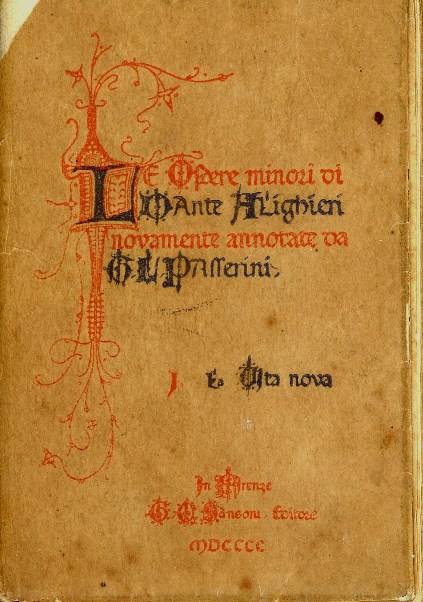 LE Opere minori di
Dante Alighieri
novamente annotate da
G L Passerini.
I. Vita nova
In Firenze
G. C. Sansoni. Editore
MDCCCC